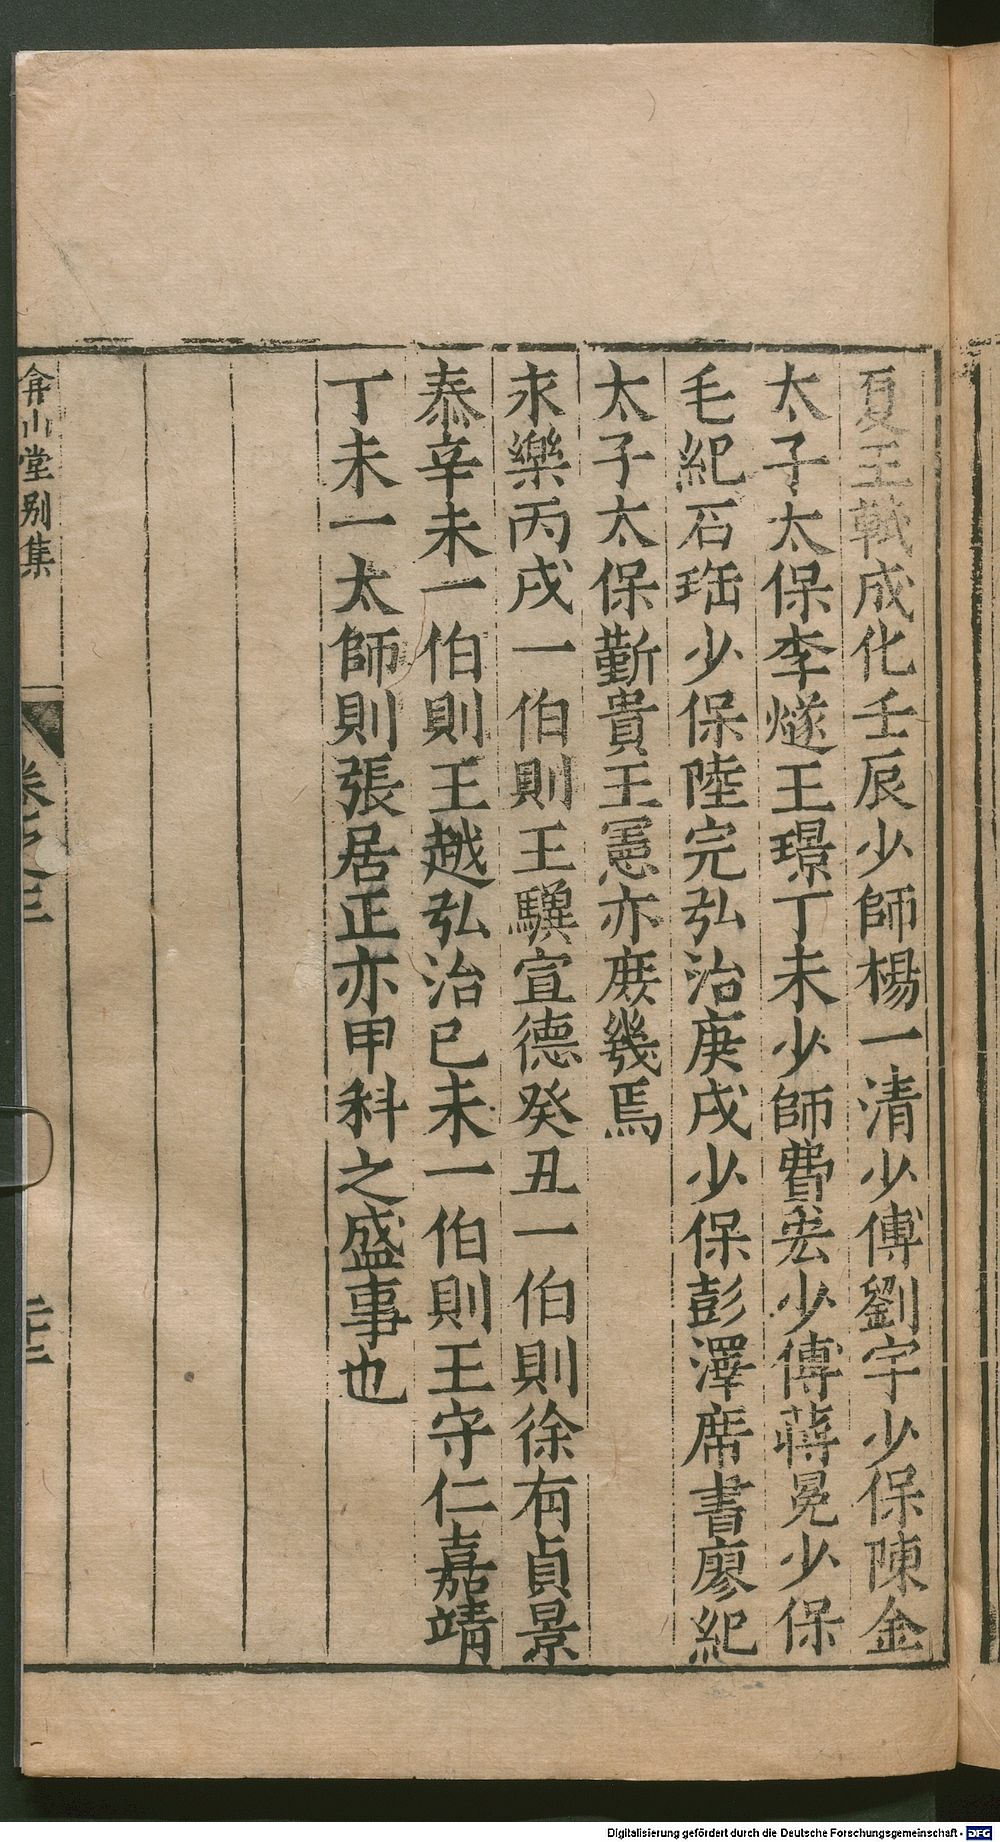 夏王軏成化壬辰少師楊一清少傅劉宇少保陳金
太子太保李燧王璟丁未少師費宏少傅蔣冕少保
毛紀石珤少保陸完弘治庚戌少保彭澤席書廖紀
太子太保靳貴王憲亦庶幾焉
永樂丙戌一伯則王驥宣德癸丑一伯則徐有貞景
泰辛未一伯則王越弘治已未一伯則王守仁嘉靖
丁未一太師則張居正亦甲科之盛事也
弇山堂别集
卷之三
二十三
Digitalisierung gefördert durch die Deutsche Forschungsgemeinschaft - DFG